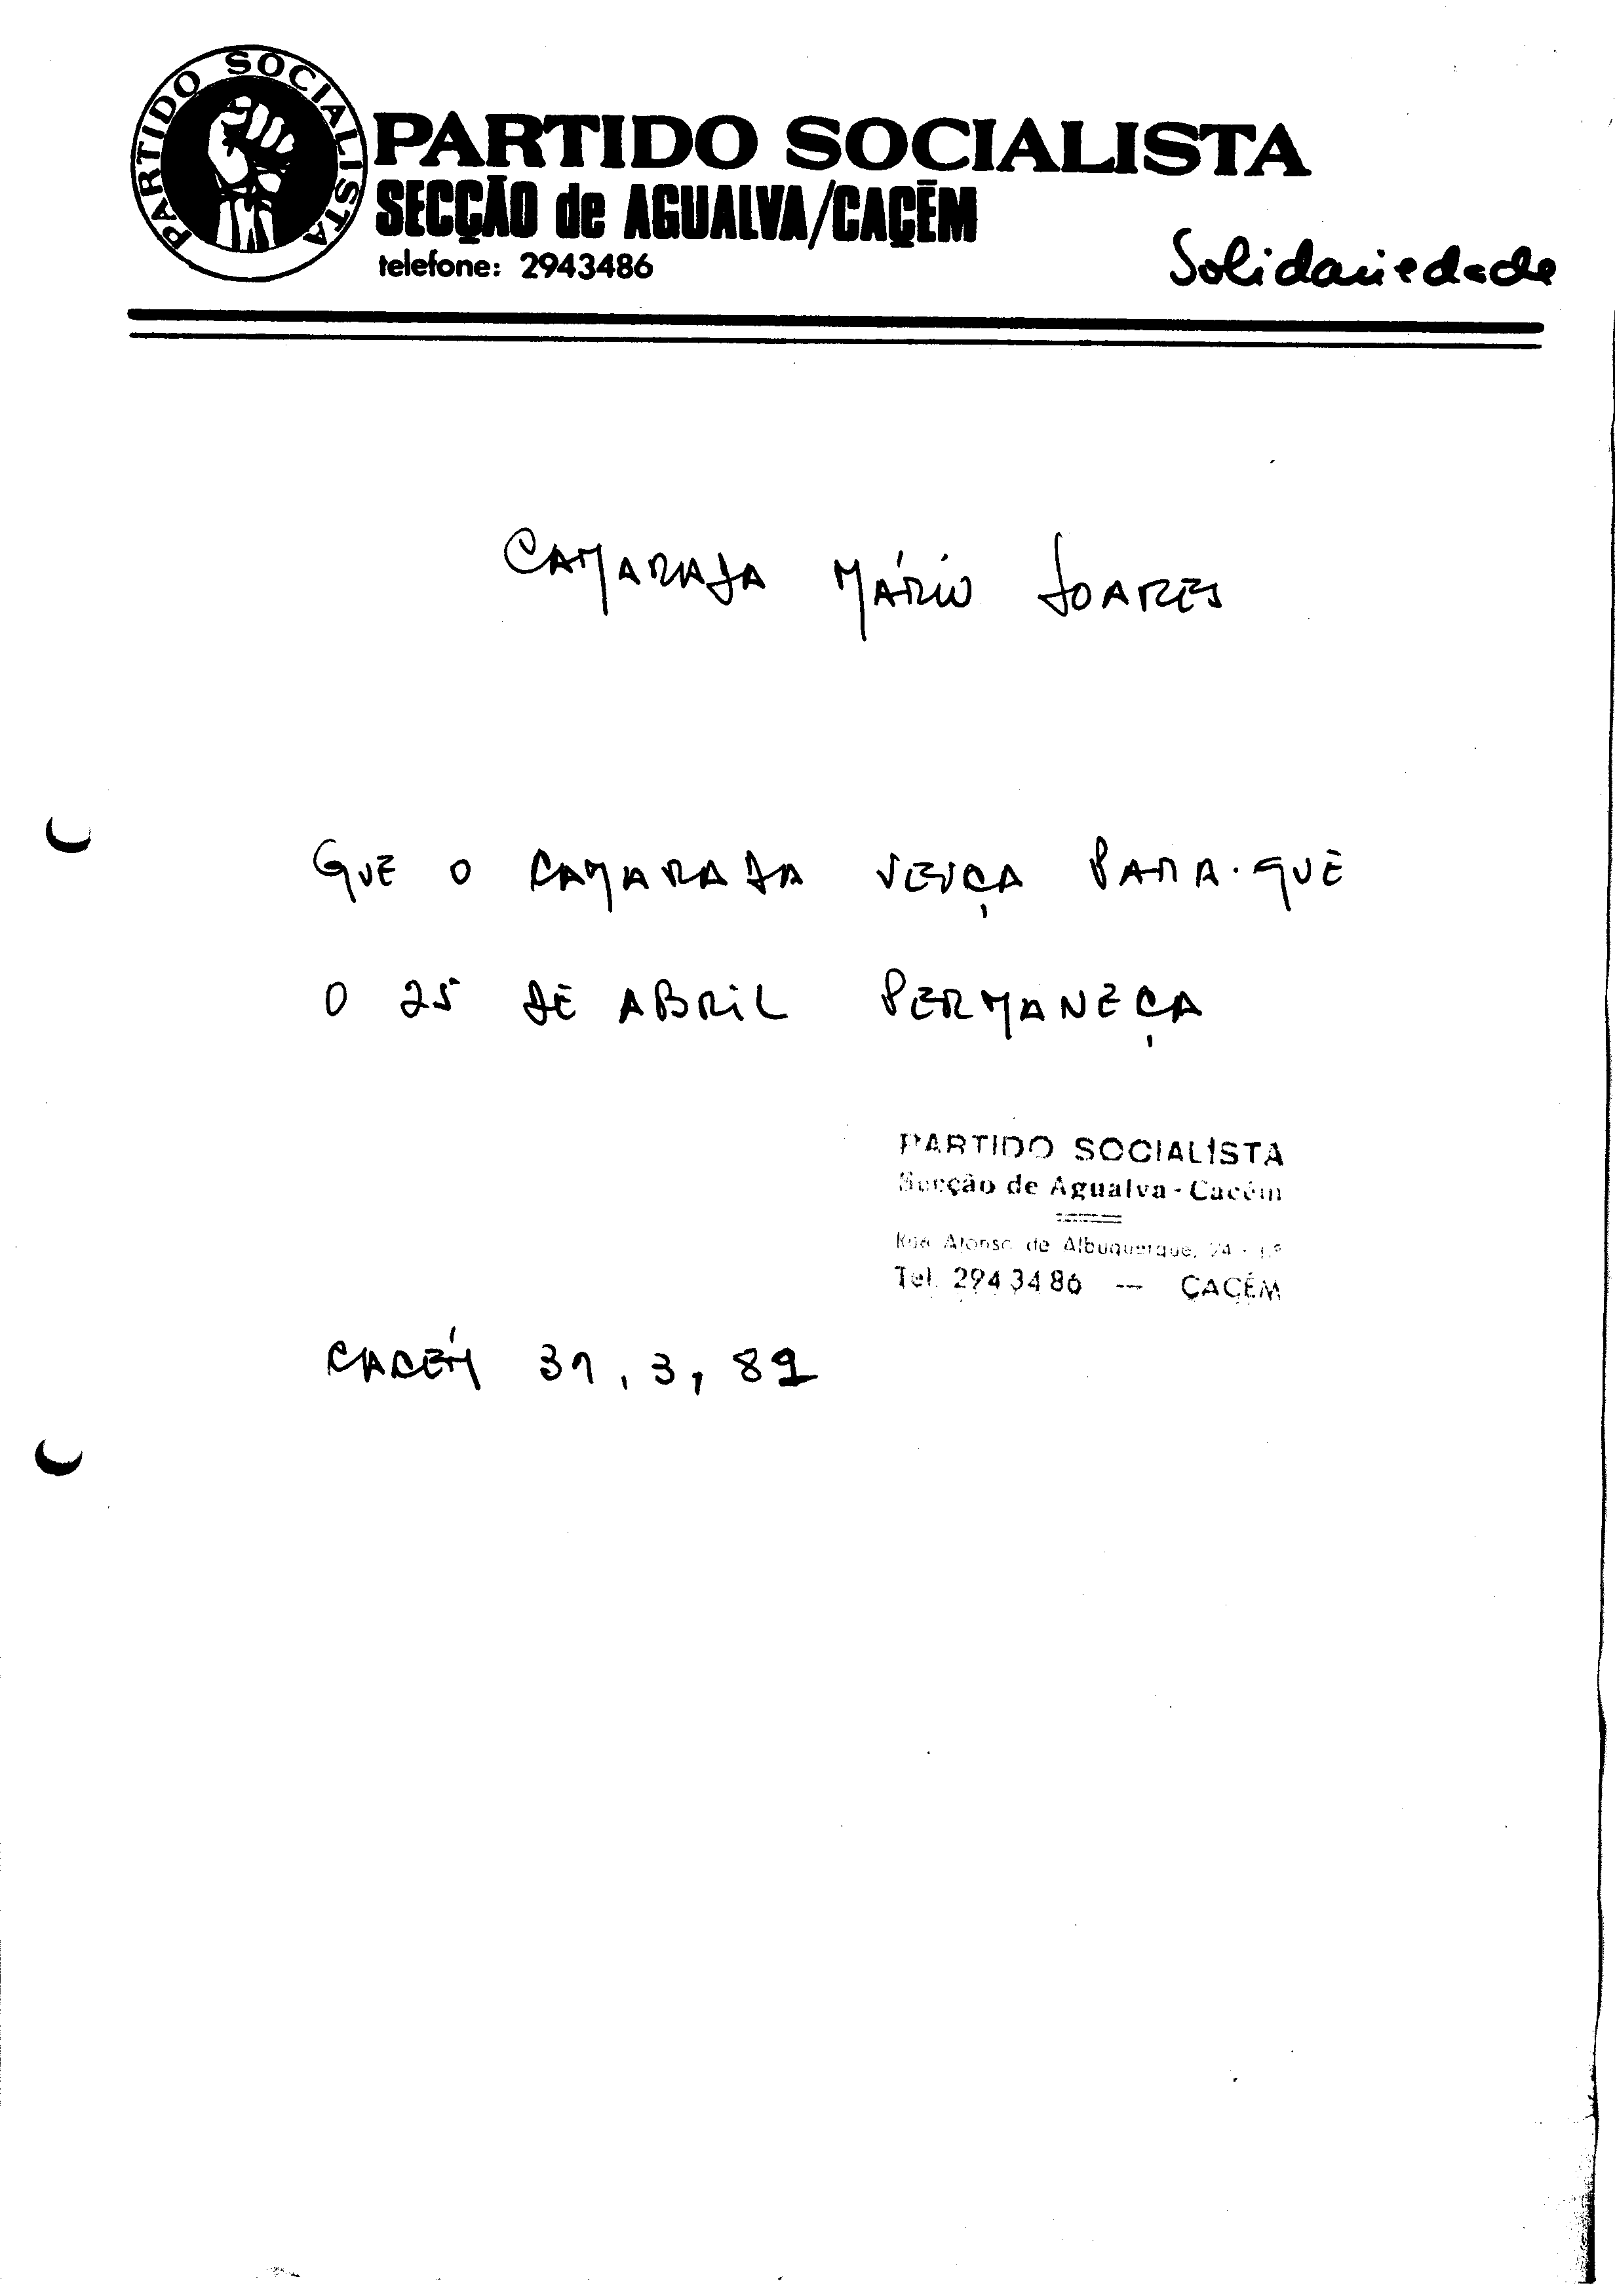 PARTIDO SOCIALISTA
PARTIDO SOCIALISTA
SECÇÃO de AGUALVA/CAÇÉM
telefone: 2943486
Solidariedade
CAMARADA MÁRIO SOARES
QUE O CAMARADA VENÇA PARA. QUE
O 25 DE ABRIL PERMANEÇA
PARTIDO SOCIALISTA
Secção de Agualva - Cacém
Rua Afonso de Albuquerque, 24 - 1.º
Tel. 294 34 86 — CAÇÉM
CACÉM 31, 3, 82